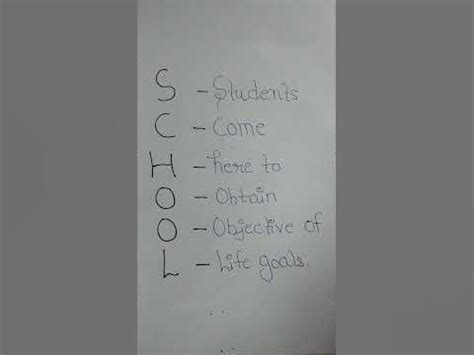 S - Students
C - Come
H - here to
O - Obtain
O - Objective of
L - Life goals.